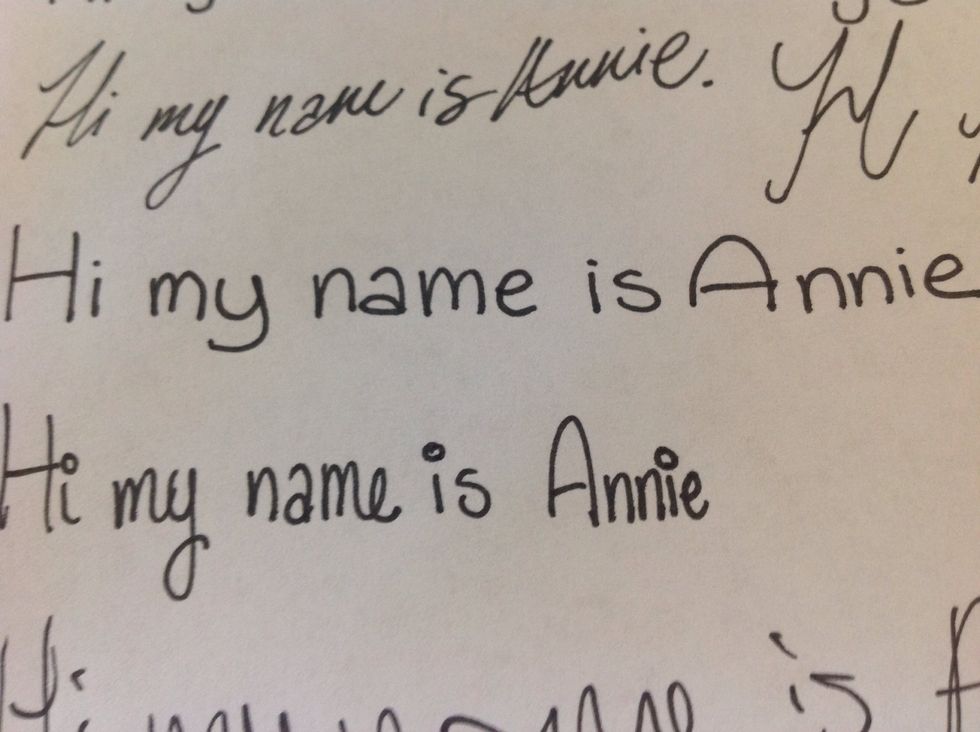 Hi my name is Annie.
Hi my name is Annie
Hi my name is Annie
Hi is